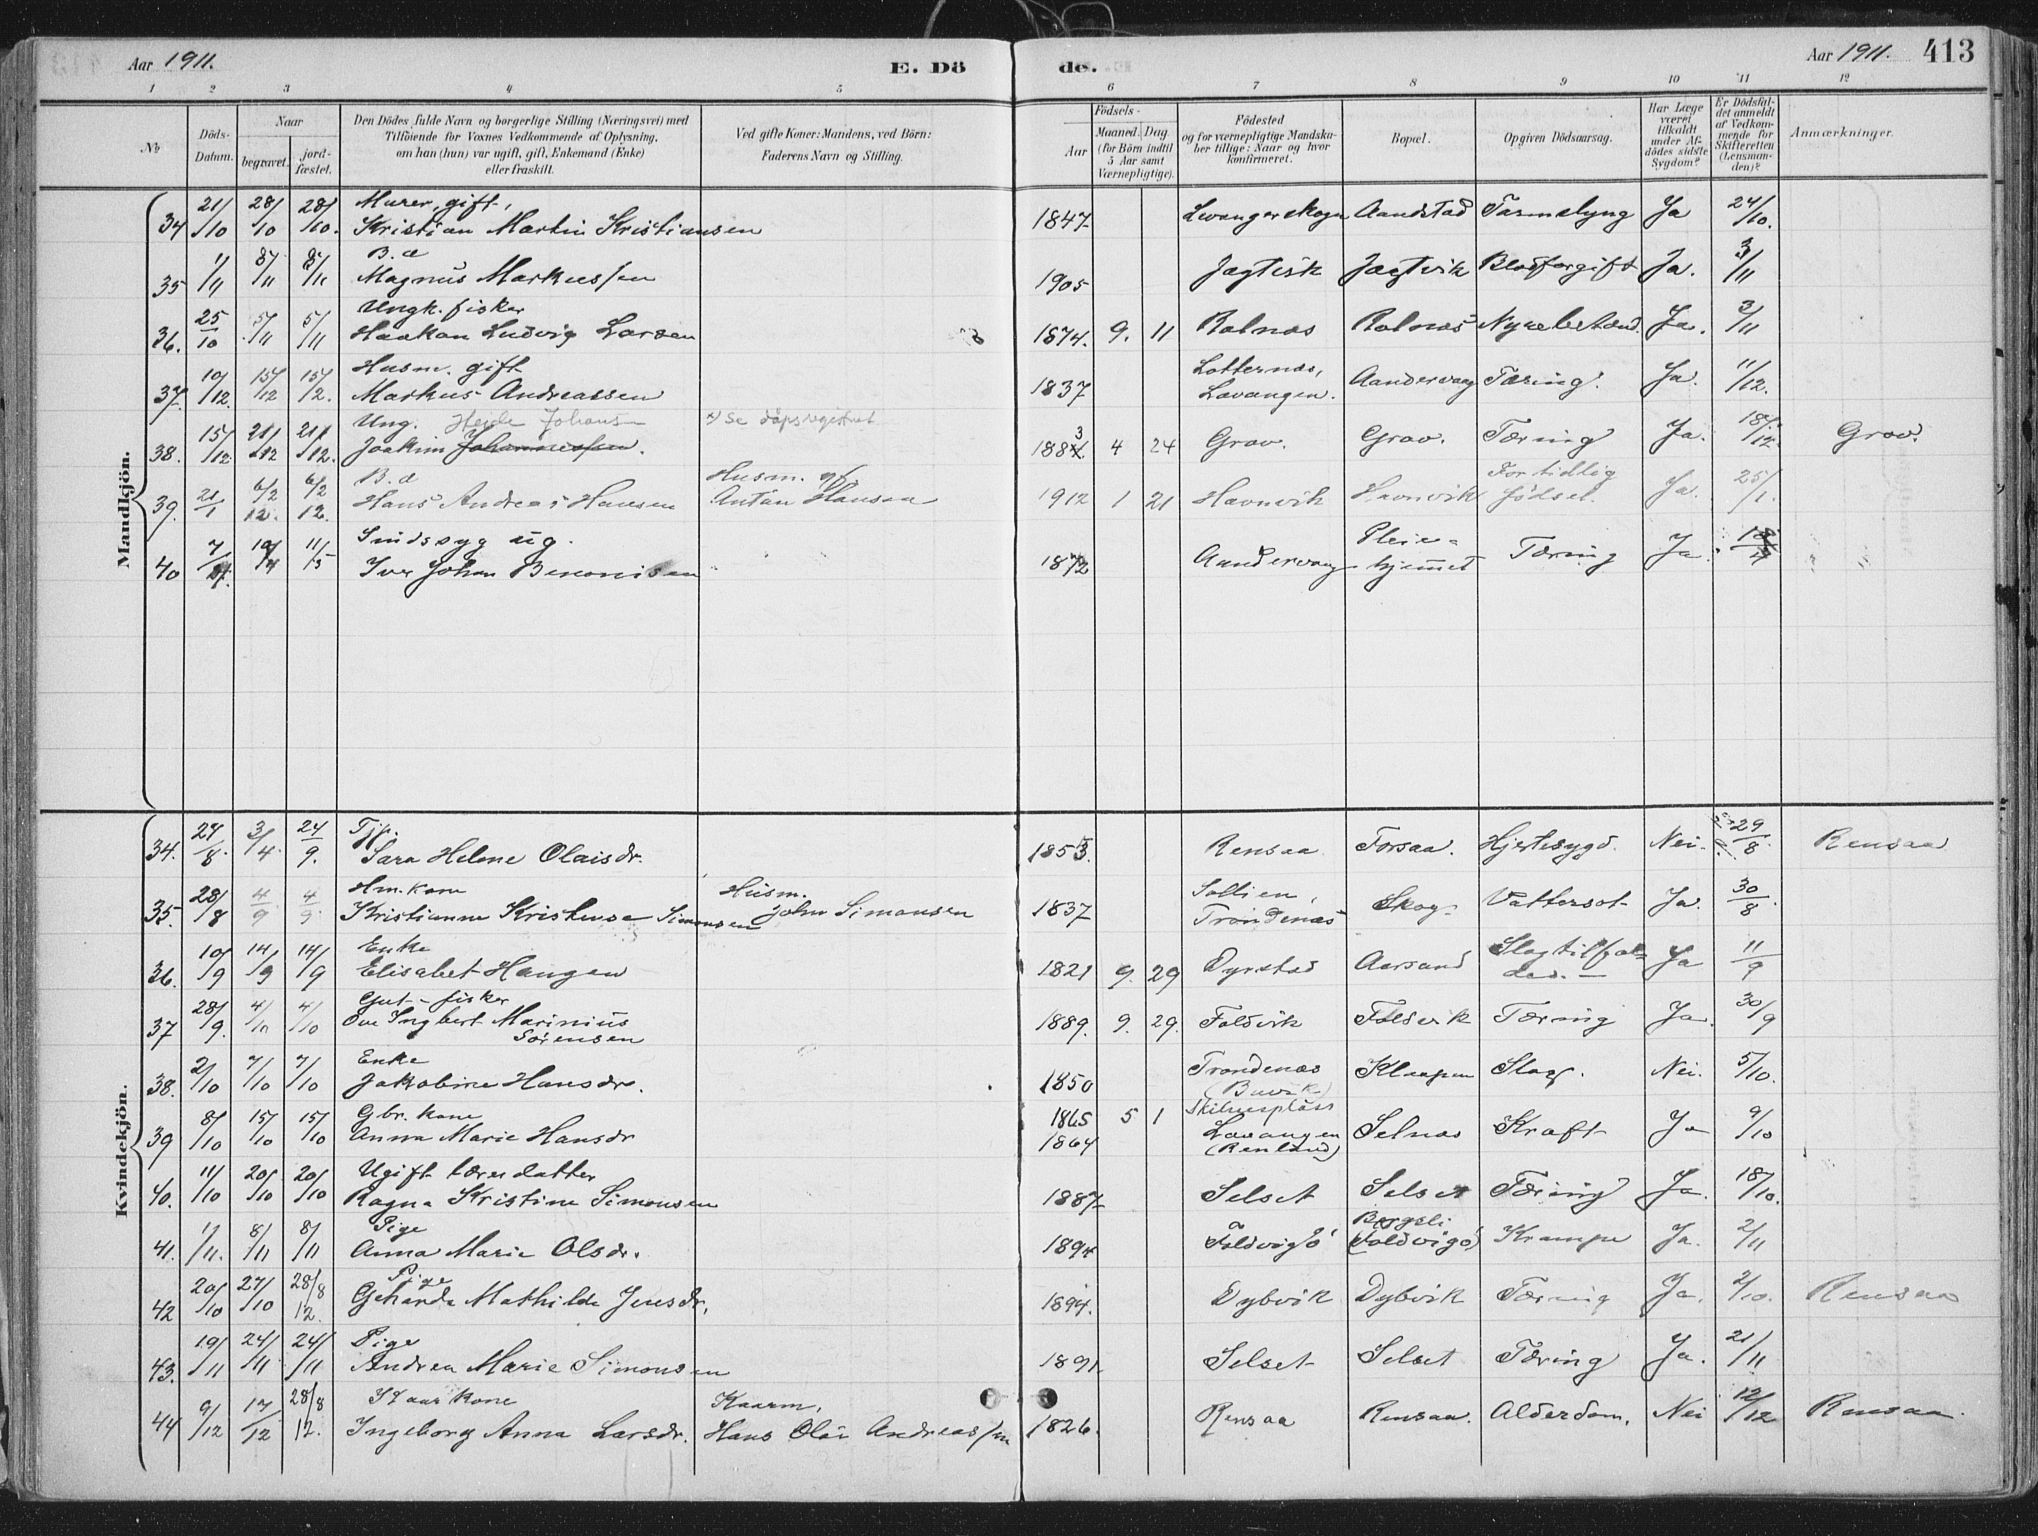 Aar 1911.
E. Dö
de.
Aar 1911.
413
1 2 3 4 5 6 7 8 9 10 11 12
No
Döds-Datum.
Naar
begravet.
jord-fæstet.
Den Dödes fulde Navn og borgerlige Stilling (Næringsvei) med
Tilföiende for Voxnes Vedkommende af Oplysning,
om han (hun) var ugift, gift, Enkemand (Enke)
eller fraskilt.
Ved gifte Koner: Mandens, ved Börn:
Faderens Navn og Stilling.
Födsels-
Aar
Maaned. Dag
(for Börn indtil
5 Aar samt
Værnepligtige).
Födested
og for værnepligtige Mandska-
ber tillige: Naar og hvor
konfirmeret.
Bopæl.
Opgiven Dödsaarsag.
Har Læge
været
tilkaldt
under Af-
dödes sidste
Sygdom?
Er Dödsfal-
det anmeldt
af Vedkom-
mende for
Skifteretten
(Lensman-
den)?
Anmærkninger.
Mandkjön.
34 21/10 28/10 28/10. Murer, gift, Kristian Martin Kristiansen 1847 Levangerskogn Aandstad Tarmslyng Ja 24/10.
35 1/11 8/11 8/11 B. a Magnus Markussen 1905 Jægtvik Jægtvik Blodforgift Ja. 3/11
36. 25/10 5/11 5/11 Ungk. fisker Haakon Ludvig Larsen 1874. 9. 11 Rolnæs Rolnæs Nyrebetænd. Ja. 3/11
37. 10/12. 15/12 15/12. Husm. gift Markus Andreassen 1837 Lotternæs, Lavangen. Aandervaag Tæring. Ja. 11/12.
38. 15/12 21/12 21/12. Ung. Heide Johans Joakim Johannessen. x) Se dåpsregistret 1883 4 24 Grov. Grov. Tæring Ja. 18/12. Grov.
39. 21/1 6/2 12. 6/2 12. B. a Hans Andreas Hansen Husm. Anton Hansen 1912 1 21 Havnvik Havnvik For tidlig födsel. Ja. 25/1.
40 7/4. 19/4 11/5 Sindssyg ug. Iver Johan Benonisen 1872 Aandervaag Pleie-hjemmet Tæring Ja.
Kvindekjön.
34. 27/8. 3/4 24/9. Tjp. Sara Helene Olaisdr. 1853. Rensaa Forsaa. Hjertesygd. Nei. 29/8 Rensaa
35. 28/8 4/9 4/9. Hm. kone Kristianna Kristense Simonsen Husm. John Simonsen 1837 Sollien, Trondenæs Skog. Vattersot Ja. 30/8
36. 10/9 14/9 14/9 Enke Elisabet Haugen 1821 9. 29 Dyrstad Aarsand Slagtilfæl- Ja 11/9
37 28/9. 4/10 4/10 Gut - fisker Ove Ingbert Marinius Sörensen 1889. 9. 29. Foldvik Foldvik Tæring Ja. 30/9
38. 2/10 7/10 7/10 Enke Jakobine Hansdr. 1850 Trondenæs (Buvik) Klaapen Slag. Nei. 5/10.
39 8/10 15/10 15/10 Gbr. kone Anna Marie Hansdr 1865 1864 5 1 Lavangen (Renland) Selnæs Kræft Ja 9/10
40. 11/10 20/10 20/10 Ugift lærerdatter Ragna Kristine Simonsen 1887 Selset Selset Tæring Ja. 18/10.
41. 1/11. 8/11 8/11 Pige Anna Marie Olsdr. 1894 Foldvigö Bergsli (Foldvigö) Krampe Ja. 2/11
42 20/10 27/10 28/8 12. Pige Geharda Mathilde Jensdr. 1894. Dybvik Dybvik Tæring Ja. 2/10. Rensaa
43. 19/11 24/11 24/11 Pige Andrea Marie Simonsen 1891. Selset Selset Tæring Ja. 21/11
44 9/12 17/12 28/8 12. Kaarkone Ingeborg Anna Larsdr. Kaarm. Hans Olai Andreassen 1826. Rensaa Rensaa. Alderdom. Nei 12/12 Rensaa.